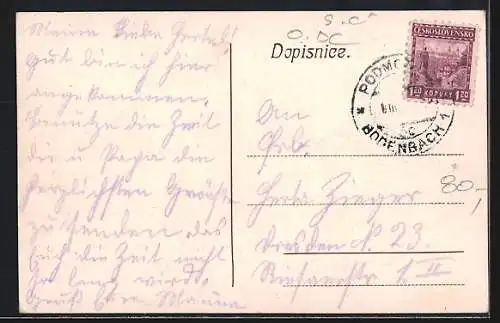 Meine liebe Herta!
Gut bin ich hier
angekommen,
benutze die Zeit
die u Papa die
herzlichsten Grüße
zu senden das
Euch die Zeit nicht
so lang wird.
Gruß Euer Mama
Dopisnice.
ČESKOSLOVENSKO
1.20 KORUNY 1.20
PODMO
BODENBACH 1
An
Frl.
Herta Zieger
Dresden N 23.
II
80,-